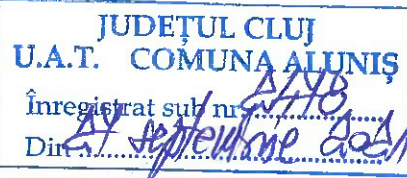 JUDEȚUL CLUJ
U.A.T. COMUNA ALUNIȘ
Înregistrat sub nr. 2478
Din 24 septembrie 2021